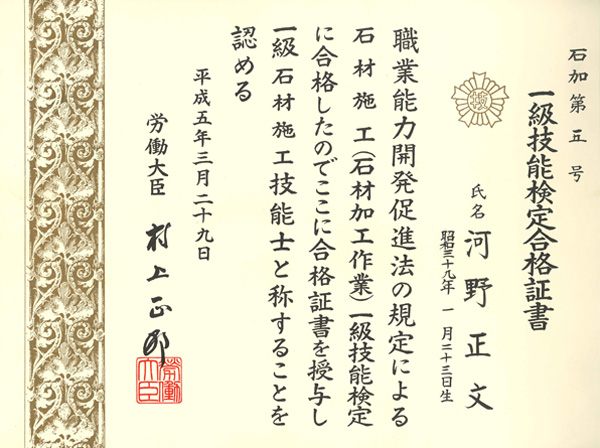 石加第五号
一級技能検定合格証書
技
氏名 河野正文
昭和三十九年 一月二十三日生
職業能力開発促進法の規定による
石材施工(石材加工作業)一級技能検定
に合格したのでここに合格証書を授与し
一級石材施工技能士と称することを
認める
平成五年三月二十九日
労働大臣 村上正邦
労働大臣